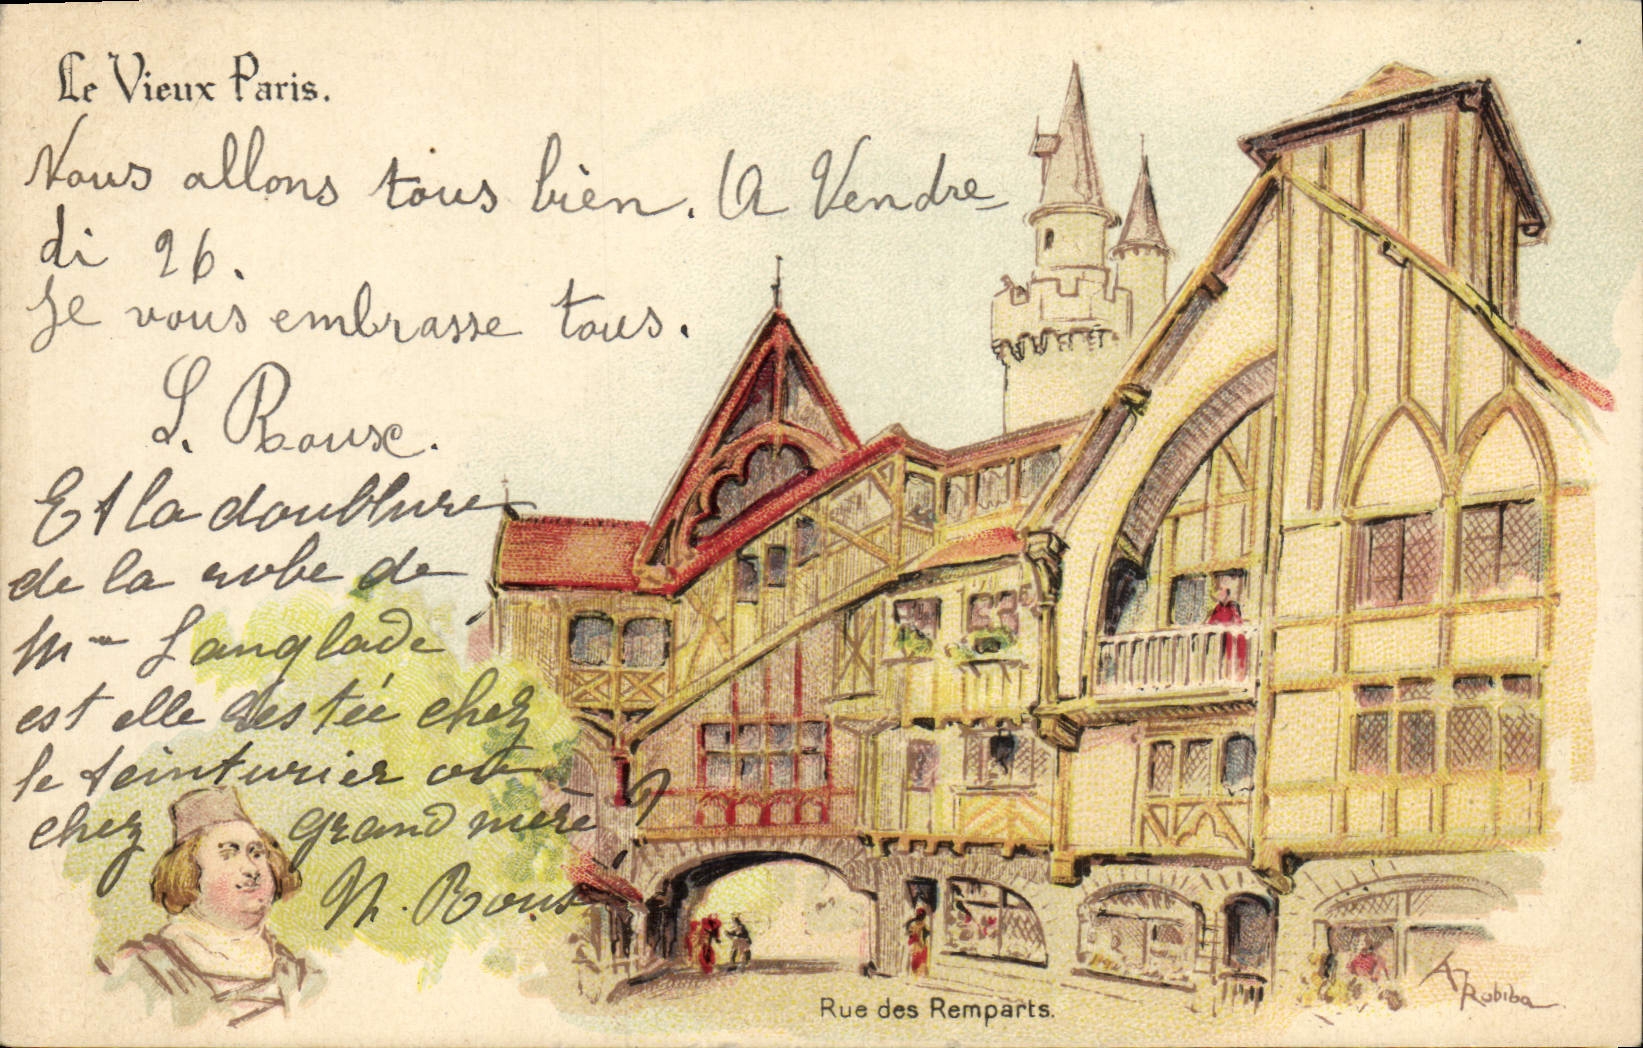 Le Vieux Paris.
Nous allons tous bien. A Vendre-
di 26.
Je vous embrasse tous.
L. Roux.
Et la doublure
de la robe de
Mme Langlade
est elle restée chez
le teinturier ou
chez grand mère ?
M. Roux
Rue des Remparts.
A. Robida